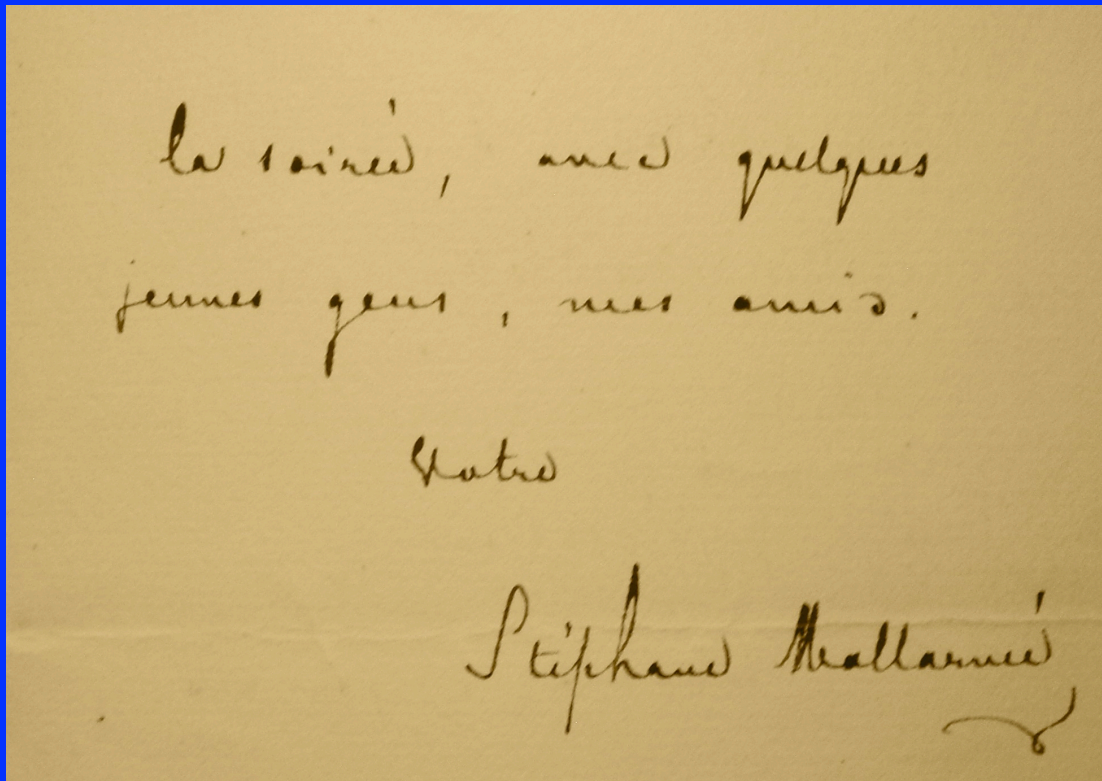 la soirée, avec quelques
jeunes gens, mes amis.
Votre
Stéphane Mallarmé